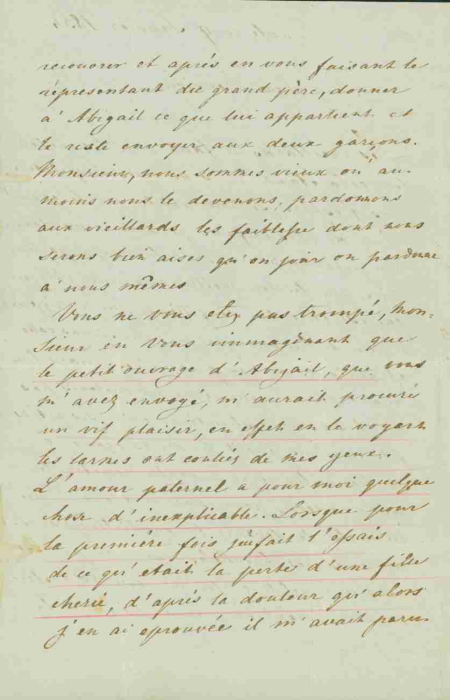 recouvrer et après en vous faisant le
répresentant du grand père, donner
à Abigail ce que lui appartient et
le reste envoyer aux deux garçons.
Monsieur, nous sommes vieux ou au
moins nous le devenons, pardonnons
aux vieillards les faiblesse dont nous
serons bien aises qu'on jour on pardonne
à nous mêmes
Vous ne vous etez pas trompé, Mon-
sieur en vous immaginant que
le petit ouvrage d'Abigail, que vous
m'avez envoyé, m'aurait procuré
un vif plaisir, en effet en le voyant
les larmes ont coulés de mes yeux.
L'amour paternel a pour moi quelque
chose d'inexplicable. Lorsque pour
la première fois j'eu fait l'essais
de ce qu'etait la perte d'une fille
cherie, d'après la douleur qu'alors
j'en ai eprouvée il m'avait paru